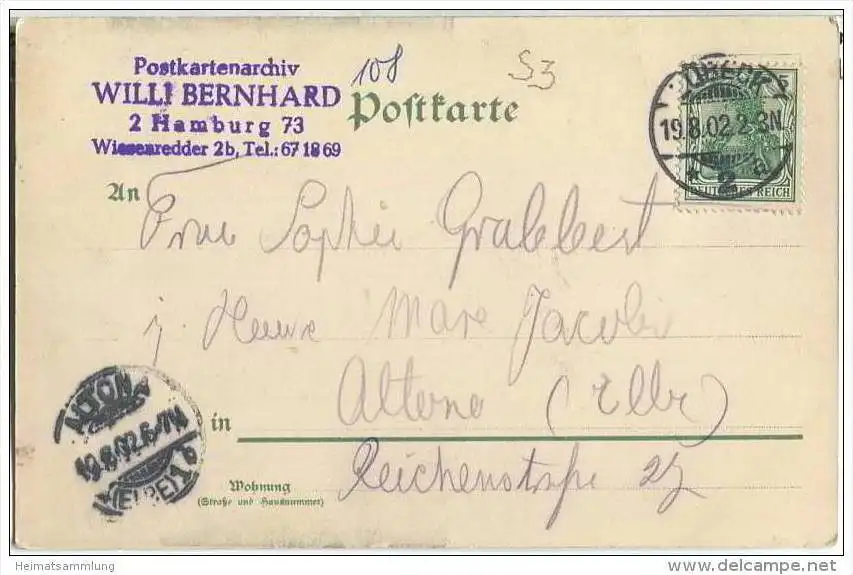 Postkartenarchiv
WILLI BERNHARD
2 Hamburg 73
Wiesenredder 2b, Tel.: 67 18 69
108
53
Postkarte
LÜBECK
19.8.02.2-3N
* 2 a
DEUTSCHES REICH
An
Frau Sophie Grabbert
Jacobi
Altona (Elbe)
in
ALTONA
19.8.02.6-7N
(ELBE) 1 b
Wohnung
(Straße und Hausnummer)
Reichenstraße 27
Heimatsammlung
delcampe.net